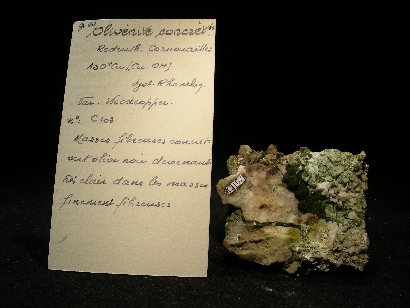 Olivénite concrét
Redruth. Cornouailles
Syst. Rhombiq.
Var. Woodcopper.
n° C108
Masses fibreuses concrét
vert olive noir devenant
très clair dans les masses
finement fibreuses.